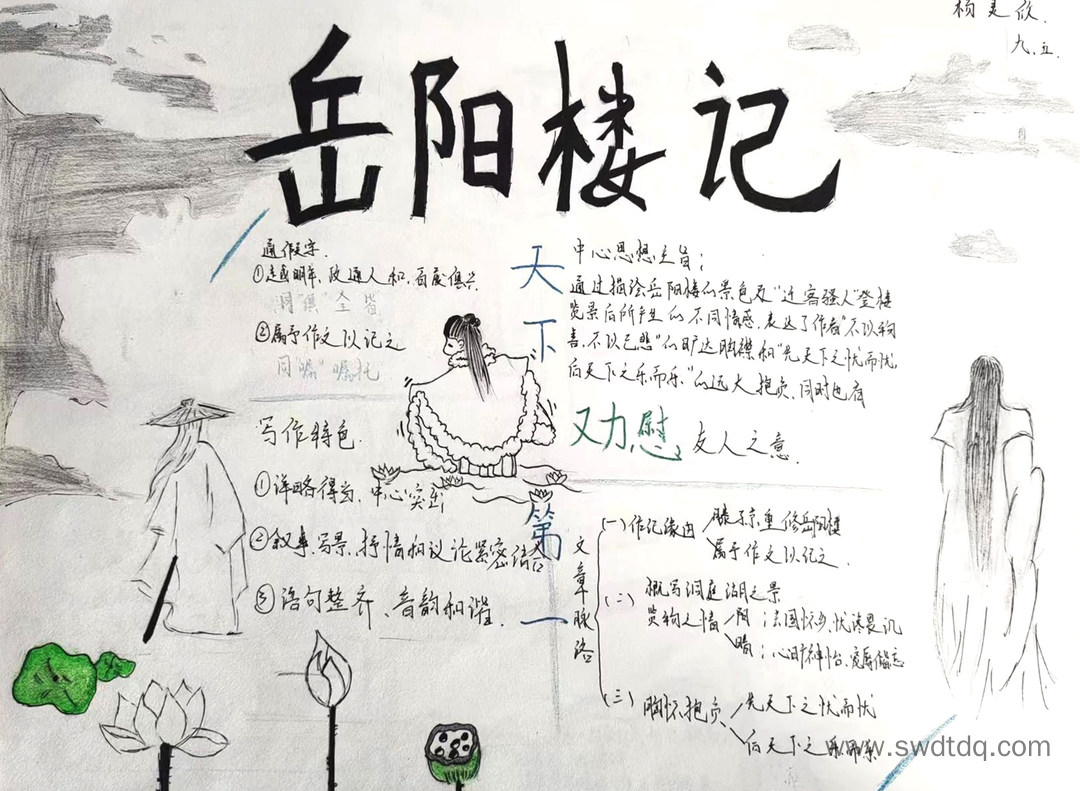 杨
九.五.
岳阳楼记
通假字.
①越明年,政通人和,百废俱兴.
同"俱" 全 皆
②属予作文以记之
同"嘱" 嘱托
写作特色.
①详略得当,中心突出
②叙事、写景、抒情和议论紧密结合
③语句整齐、音韵和谐.
天下第一
中心思想主旨:
通过描绘岳阳楼的景色及"迁客骚人"登楼
览景后所产生的不同情感,表达了作者"不以物
喜,不以己悲"的旷达胸襟和"先天下之忧而忧,
后天下之乐而乐"的远大抱负,同时也有
又力慰 友人之意.
文章脉络
(一)作记缘由
滕子京重修岳阳楼
属予作文以记之.
(二)
概写洞庭湖之景
览物之情
阴:去国怀乡,忧谗畏讥
晴:心旷神怡,宠辱偕忘
(三)胸怀抱负
先天下之忧而忧
后天下之乐而乐
www.swdtdq.com